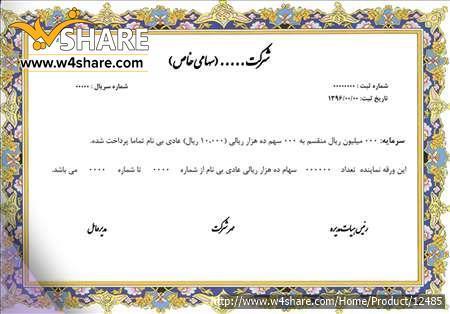 W4SHARE
www.w4share.com
شرکت ..... (سهامی خاص)
شماره ثبت : ۰۰۰۰۰۰۰۰
شماره سریال : ۰۰۰۰۰
تاریخ ثبت: ۱۳۹۶/۰۰/۰۰
سرمایه: ۰۰۰ میلیون ریال منقسم به ۰۰۰ سهم ده هزار ریالی (۱۰،۰۰۰ ریال) عادی بی نام تماما پرداخت شده.
این ورقه نماینده تعداد ۰۰۰۰۰۰ سهام ده هزار ریالی عادی بی نام از شماره ۰۰۰۰ تا شماره ۰۰۰۰ می باشد.
رئیس هیات مدیره
مهر شرکت
مدیرعامل
http://www.w4share.com/Home/Product/12485